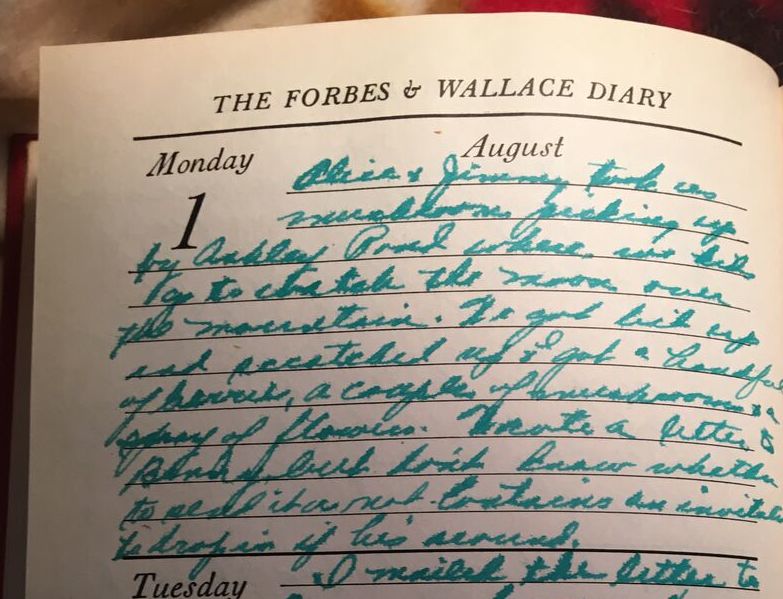 THE FORBES & WALLACE DIARY
Monday August
1
Alice & Jimmy took us
mushroom picking up
by Ashley Pond where we
to the moon over
the mountain. We got bit up
and scratched up & got a handful
of berries, a couple of mushrooms & a
spray of flowers. Wrote a letter to
but don't know whether
to send it or not. Contains an invitation
to drop in if he's around.
Tuesday
I mailed the letter to